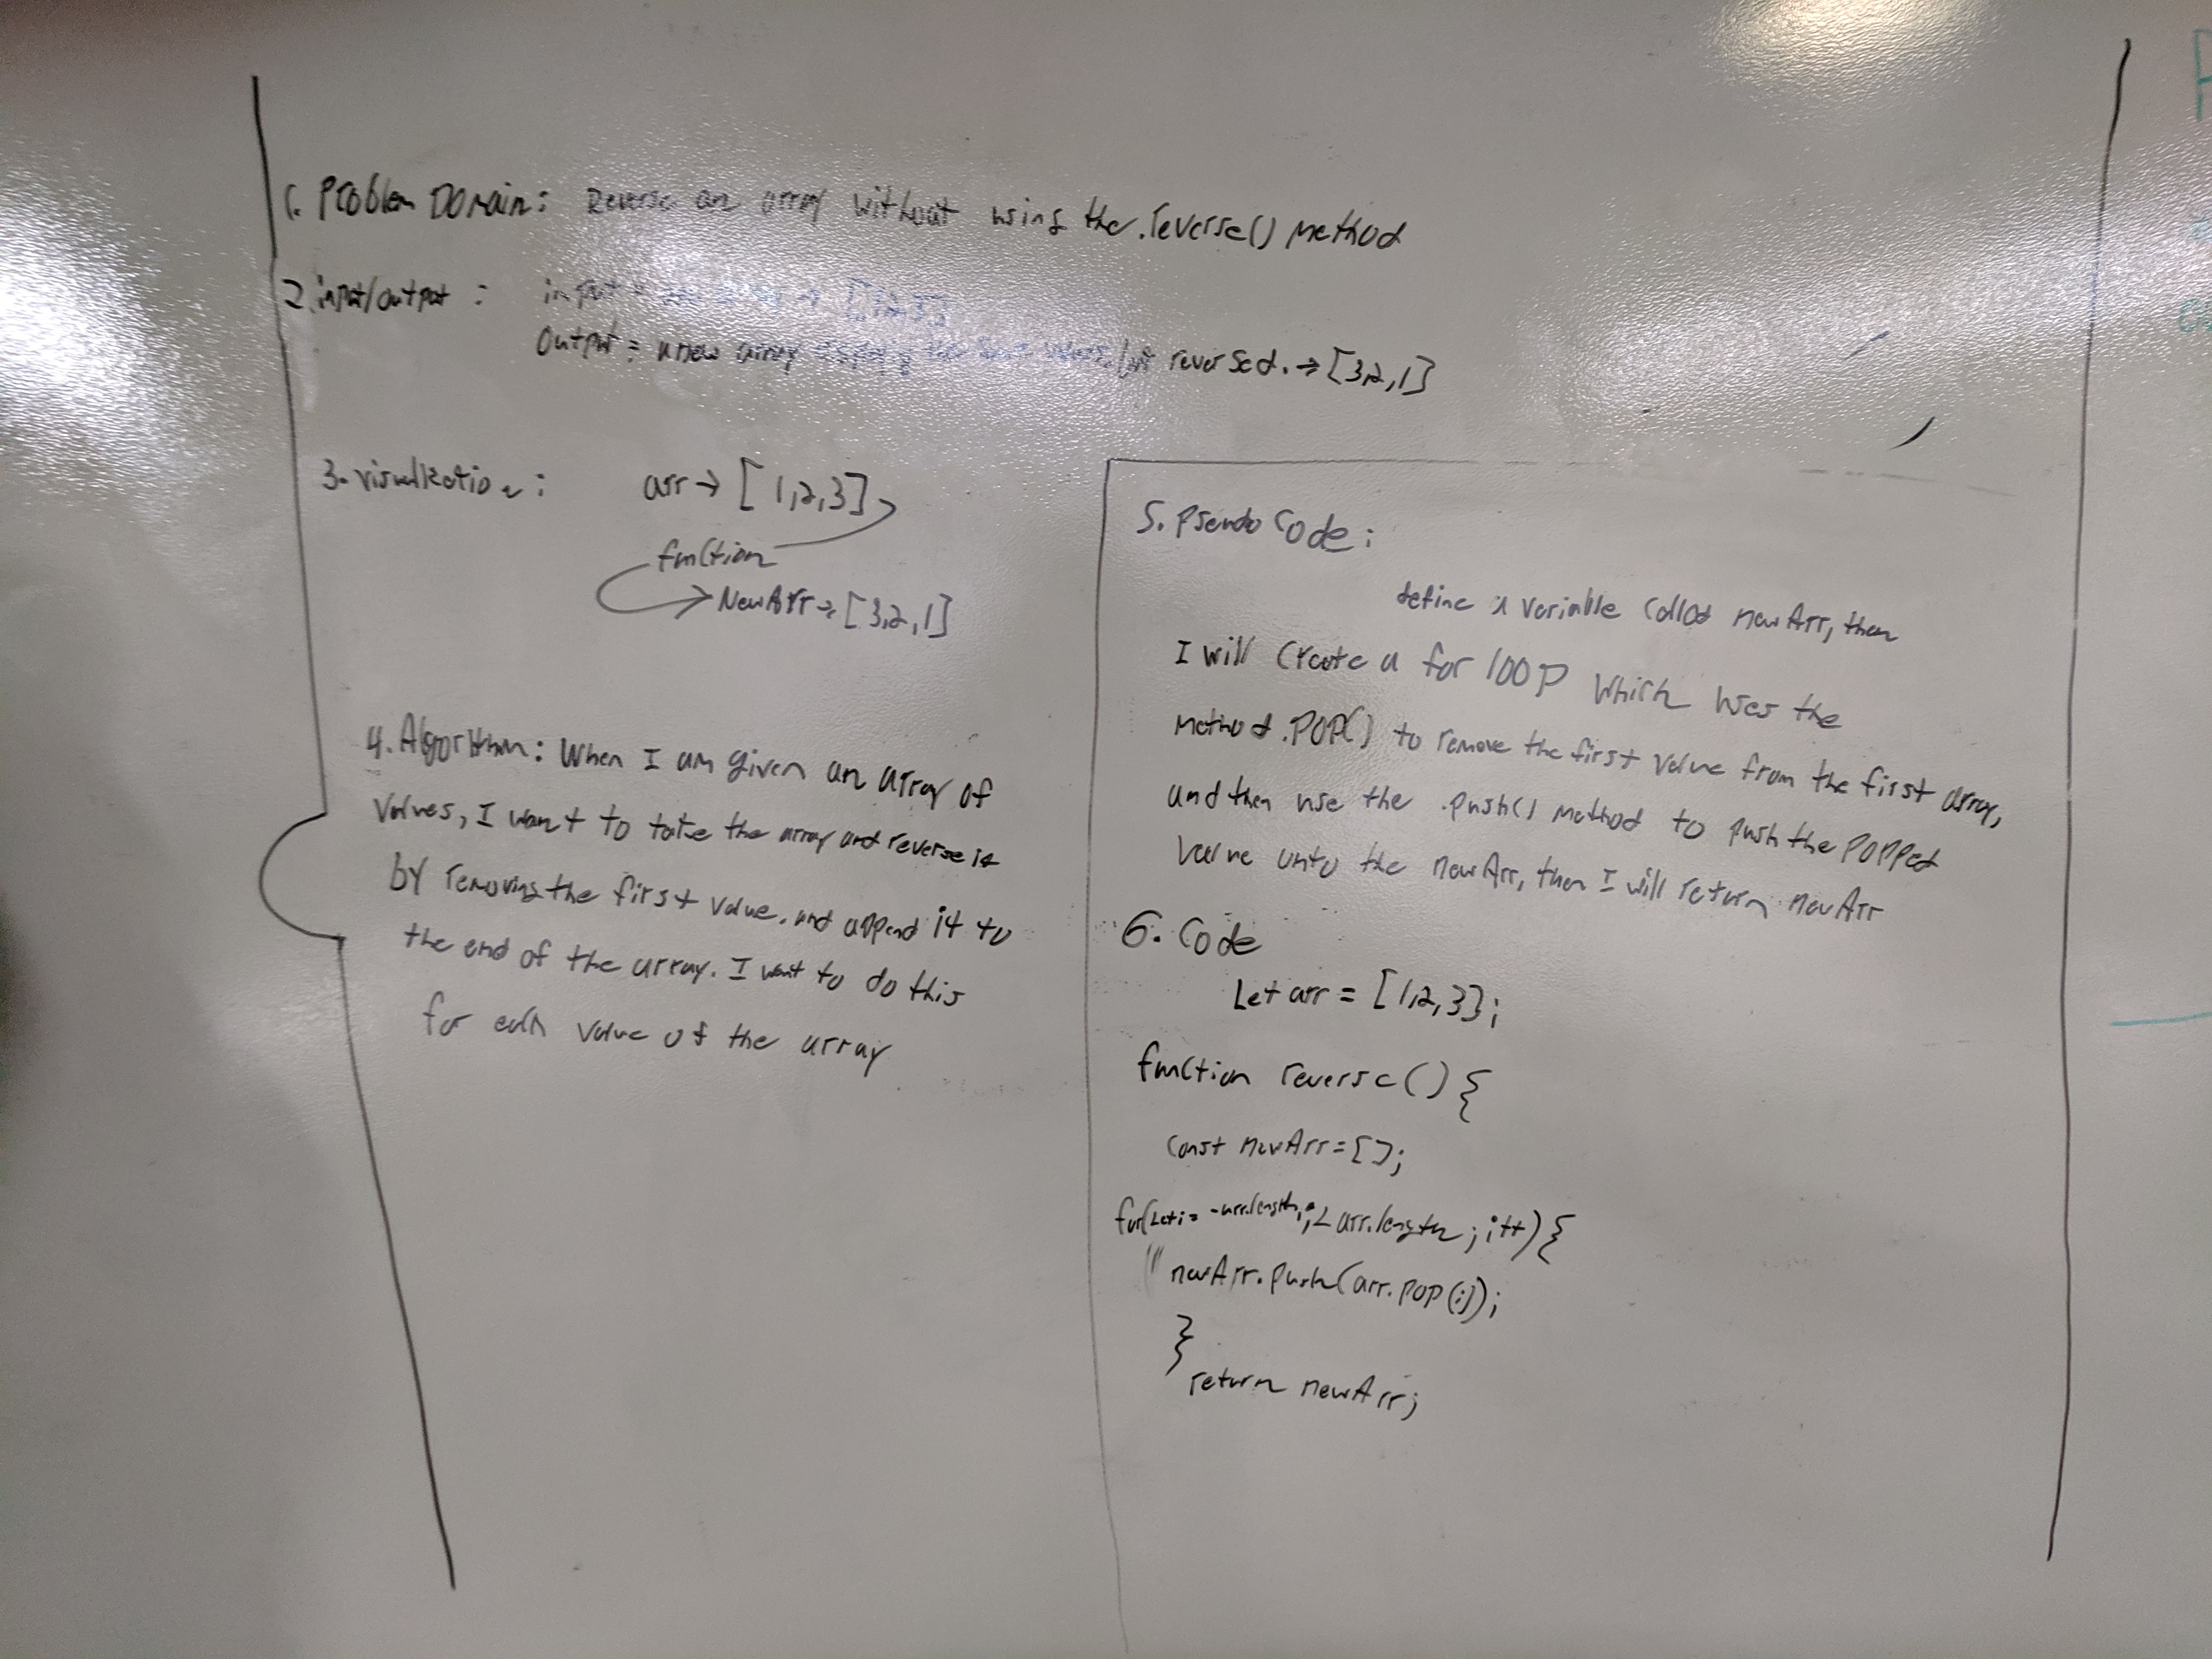 1. Problem Domain: Reverse an array without using the .reverse() method
2. input/output : input = → [1,2,3]
Output = a new array reversed. → [3,2,1]
3. Visualization: arr → [1,2,3]
function
NewArr → [3,2,1]
4. Algorithm: When I am given an array of
values, I want to take the array and reverse it
by removing the first value, and append it to
the end of the array. I want to do this
for each value of the array
5. Pseudo Code:
define a variable called newArr, then
I will create a for loop which uses the
method .POP() to remove the first value from the first array,
and then use the .push() method to push the popped
value unto the newArr, then I will return newArr
6. Code
Let arr = [1,2,3];
function reverse() {
const newArr = [];
for(Let i = -arr.length; i < arr.length; i++) {
newArr.push(arr.pop(i));
}
return newArr;